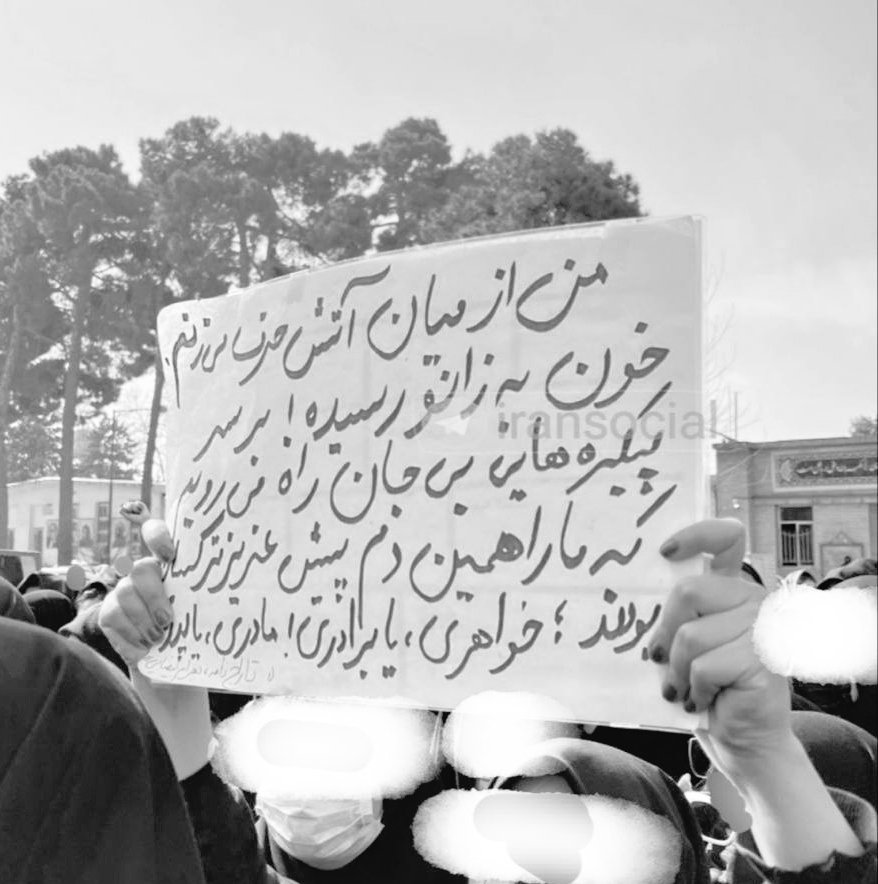 من از میان آتش حرف می‌زنم.
خون به زانو رسیده! بر سر
پیکره‌هایی بی‌جان راه می‌روید
که مارا همین دَم پیش عزیزتر کسان
بودند؛ خواهری، یا برادری! مادری، یا پدر
iransocial